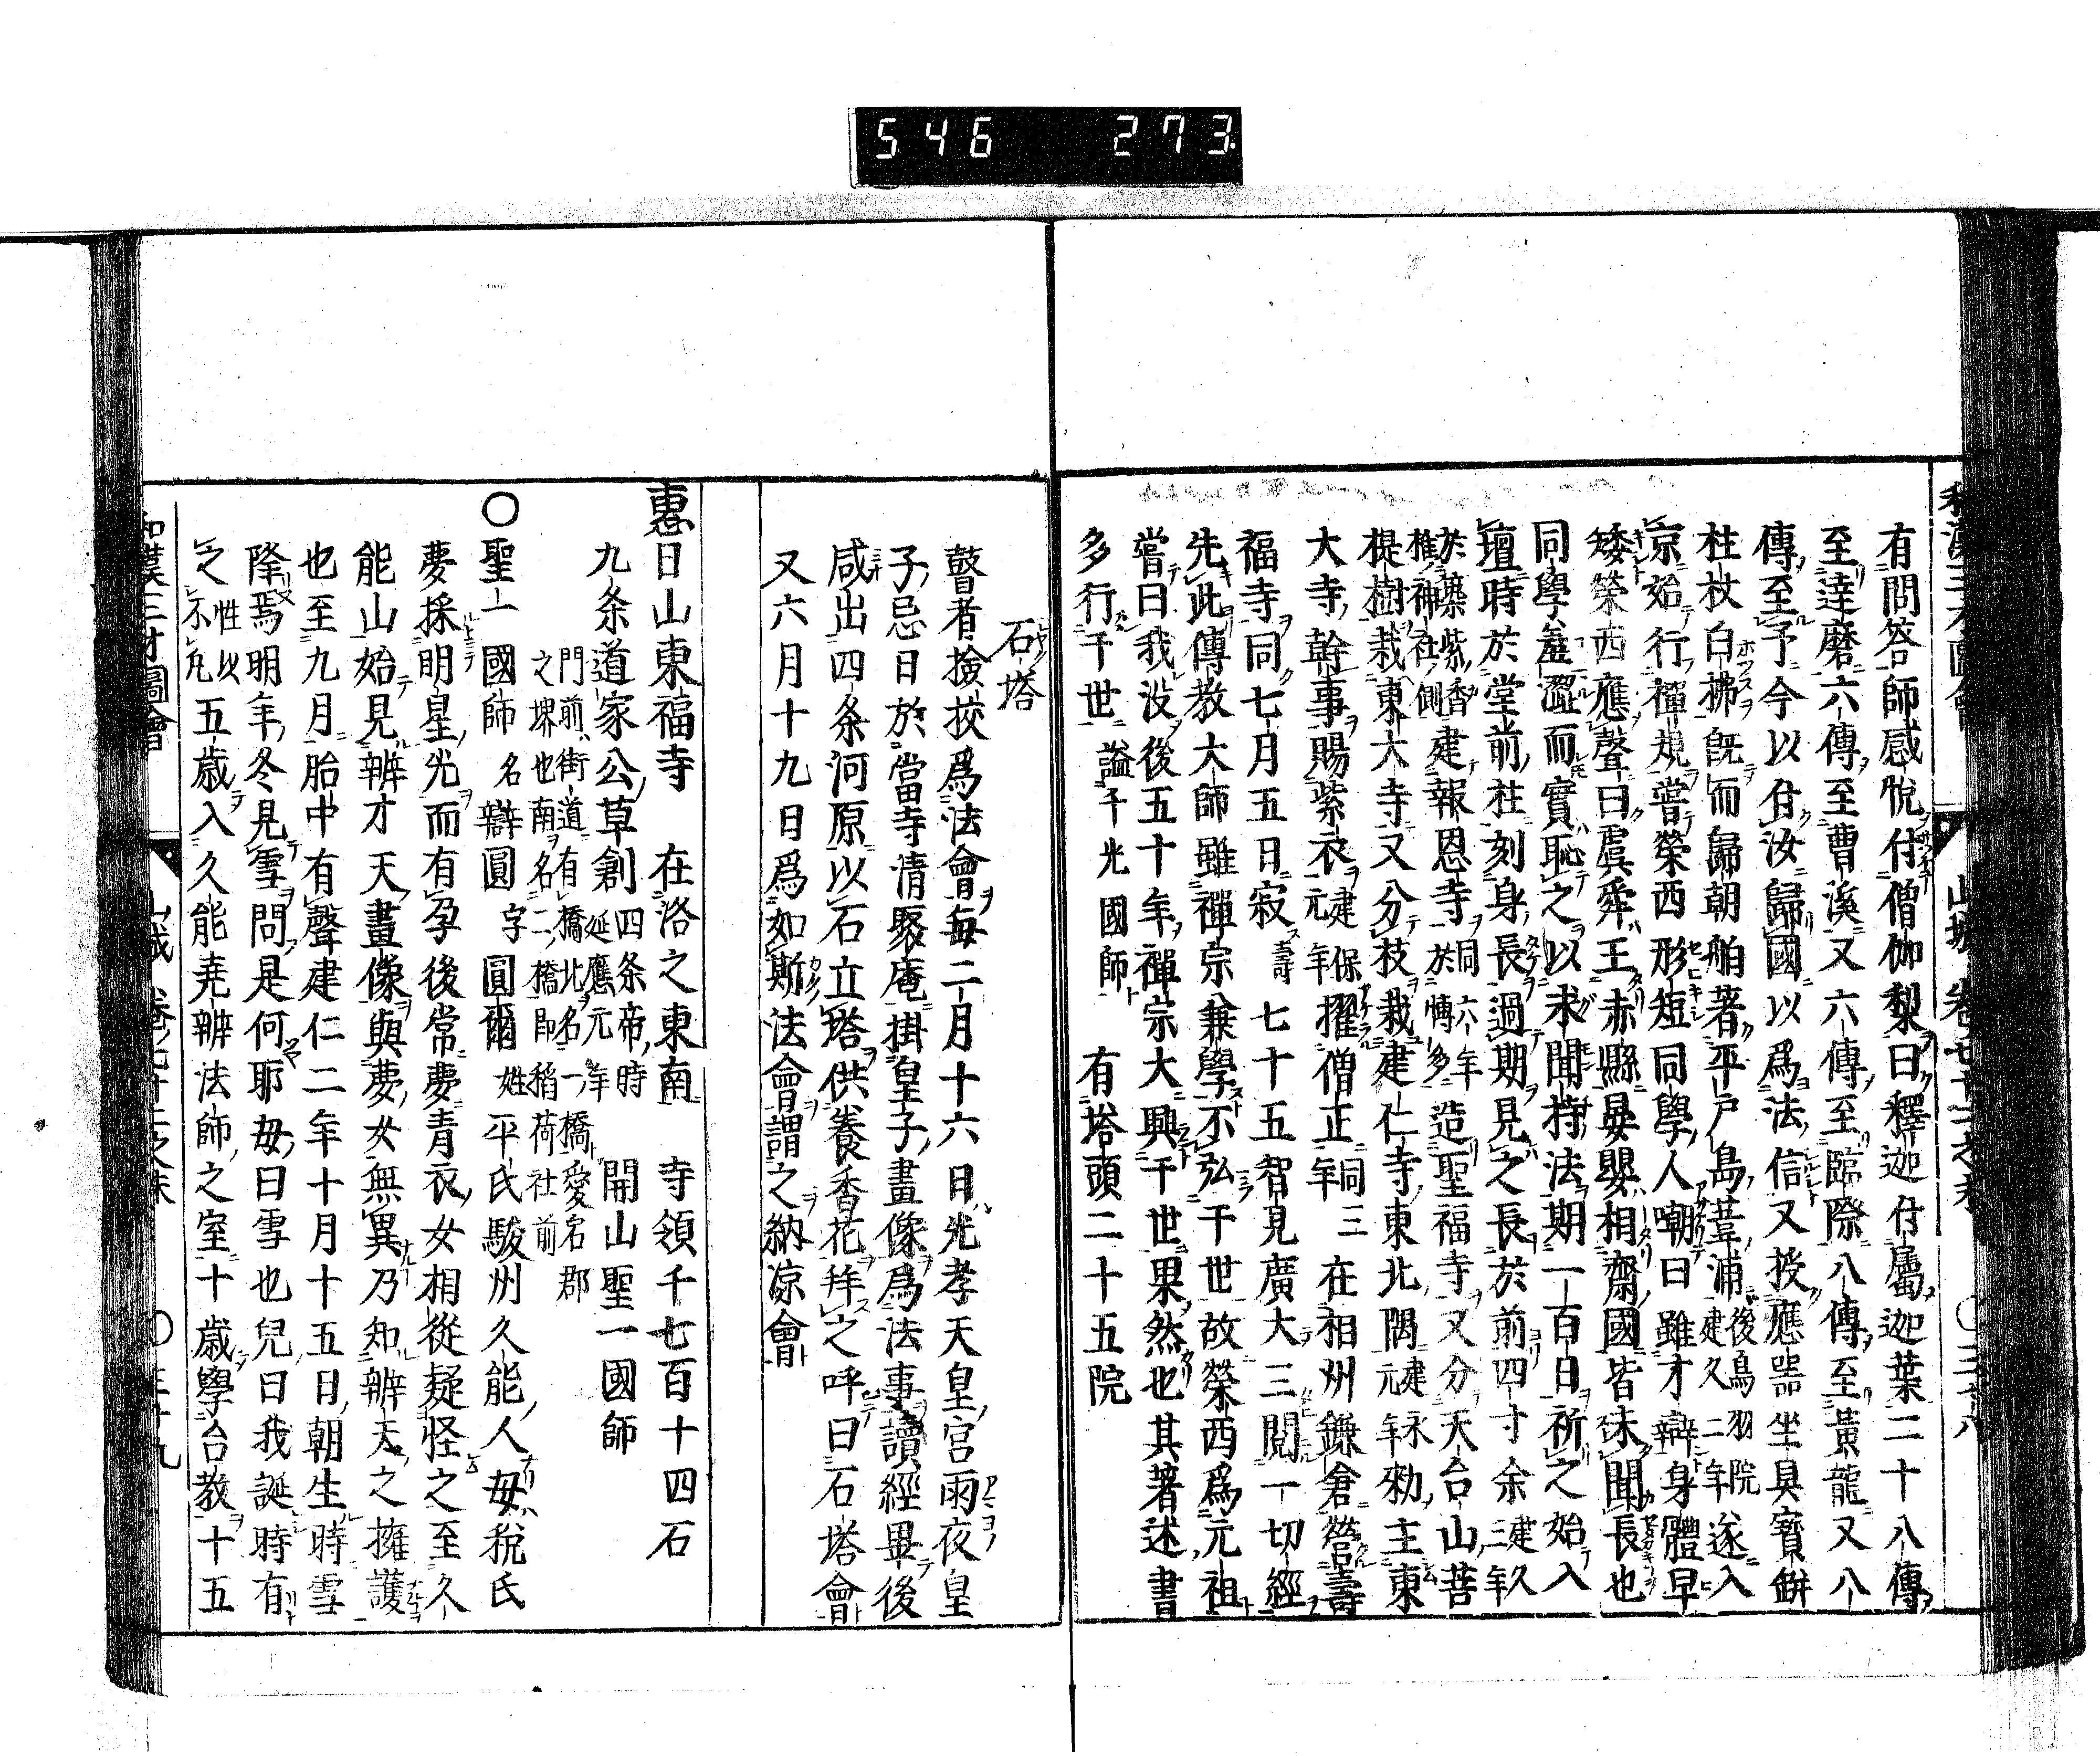 546 273
山城 卷七十二之末 〇三十八
有問答師感悅付僧伽梨曰釋迦付屬迦葉二十八傳
至達磨六傳至曹溪又六傳至臨際八傳至黃龍又八
傳至予今以付汝歸國以爲法信又授應器坐具寶缾
柱杖白拂既而歸朝舶著平戸島葦浦後鳥羽院建久二年遂入
京始行禪規嘗榮西形短同學人嘲曰雖才辯身體早
矮榮西應聲曰虞舜王赤縣晏嬰相齊國皆未聞長也
同學羞澀而實恥之以求聞持法期一百日祈之始入
壇時於堂前柱刻身長過期見之長於前四寸余建久三年
於築紫香椎神社側建報恩寺同六年於博多造聖福寺又分天台山菩
提樹栽東大寺又分枝栽建仁寺東北隅建永元年勑主東
大寺幹事賜紫衣建保元年擢僧正同三年在相州鎌倉營壽
福寺同七月五日寂壽七十五智見廣大三閱一切經
先此傳教大師雖禪宗兼學不弘于世故榮西爲元祖
嘗曰我没後五十年禪宗大興于世果然也其著述書
多行于世 謚千光國師 有塔頭二十五院
石塔
瞽者撿挍爲法會每二月十六日光孝天皇宮雨夜皇
子忌日於當寺清聚庵掛皇子畫像爲法事讀經畢後
咸出四条河原以石立塔供養香花拜之呼曰石塔會
又六月十九日爲如斯法會謂之納凉會
惠日山東福寺 在洛之東南 寺領千七百十四石
九条道家公草創 四条帝時延應元年 開山聖一國師
門前街道有橋北名一橋愛宕郡之堺也南名二橋即稻荷社前
〇聖一國師 名辯圓字圓爾 姓平氏駿州久能人母稅氏
夢採明星光而有孕後常夢青衣女相從疑怪之至久
能山始見辨才天畫像與夢女無異乃知辨天之擁護
也至九月胎中有聲建仁二年十月十五日朝生時雪
降焉明年冬見雪問是何耶母曰雪也兒曰我誕時有
之性以不凡五歲入久能堯辨法師之室十歲學台教十五
和漢三才圖會 山城 卷七十二之末 〇三十九